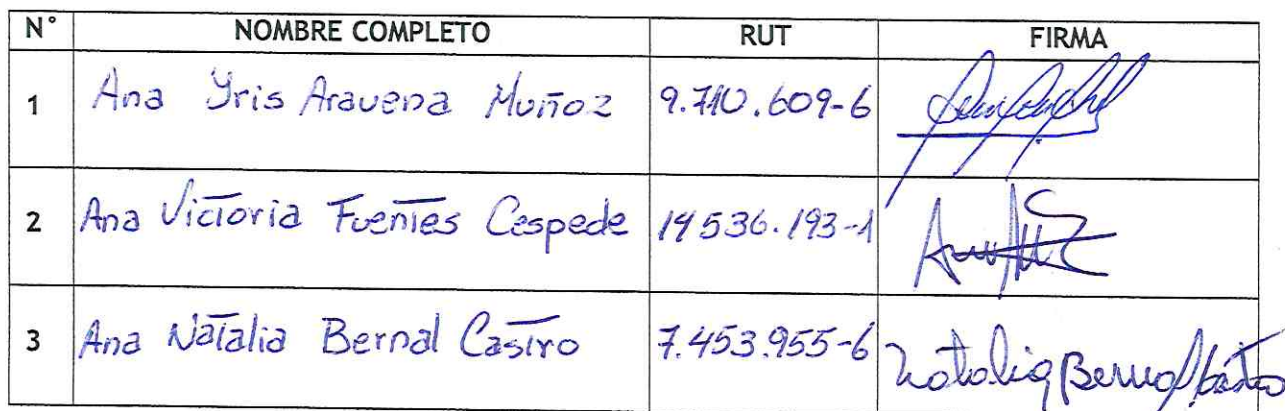 N° NOMBRE COMPLETO RUT FIRMA
1 Ana Yris Aravena Muñoz 9.710.609-6
2 Ana Victoria Fuentes Cespede 14536.193-1
3 Ana Natalia Bernal Castro 7.453.955-6 Natalia Bernal Castro